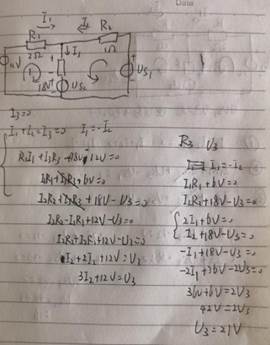 I₁ I₂
R₁ R₂
2Ω 1Ω
I₃
18V US₁
I₃=0
I₁+I₂-I₃=0 I₁=-I₂
R₁I₁+I₃R₃+18V-12V=0
I₁R₁+I₃R₃+6V=0
I₂R₂+I₃R₃+18V-U₃=0
I₂R₂-I₁R₁+12V-U₃=0
I₂R₂+I₂R₁+12V-U₃=0
I₂+2I₂+12V=U₃
3I₂+12V=U₃
R₃ U₃
I₁=-I₂
I₁R₁+6V=0
I₂R₂+18V-U₃=0
2I₁+6V=0
I₂+18V-U₃=0
-I₁+18V-U₃=0
-2I₁+36V-2U₃=0
36V+6V=2U₃
42V=2U₃
U₃=21V